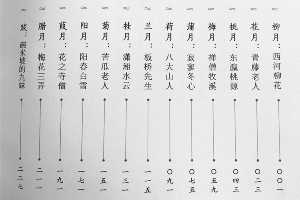 柳月：西河柳花 〇〇一
花月：青藤老人 〇二三
桃月：东瀛桃源 〇四三
梅月：禅僧牧溪 〇五五
蒲月：寂寥冬心 〇七五
荷月：八大山人 〇九一
兰月：板桥先生 一一五
桂月：潇湘水云
菊月：苦瓜老人 一五一
阳月：阳春白雪 一七一
葭月：花之寺僧 一九一
腊月：梅花三弄 二一一
跋：米坡的九妹 二二七